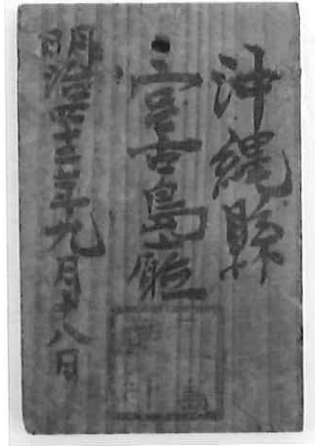 沖縄縣
宮古島廰
明治四十二年九月十八日